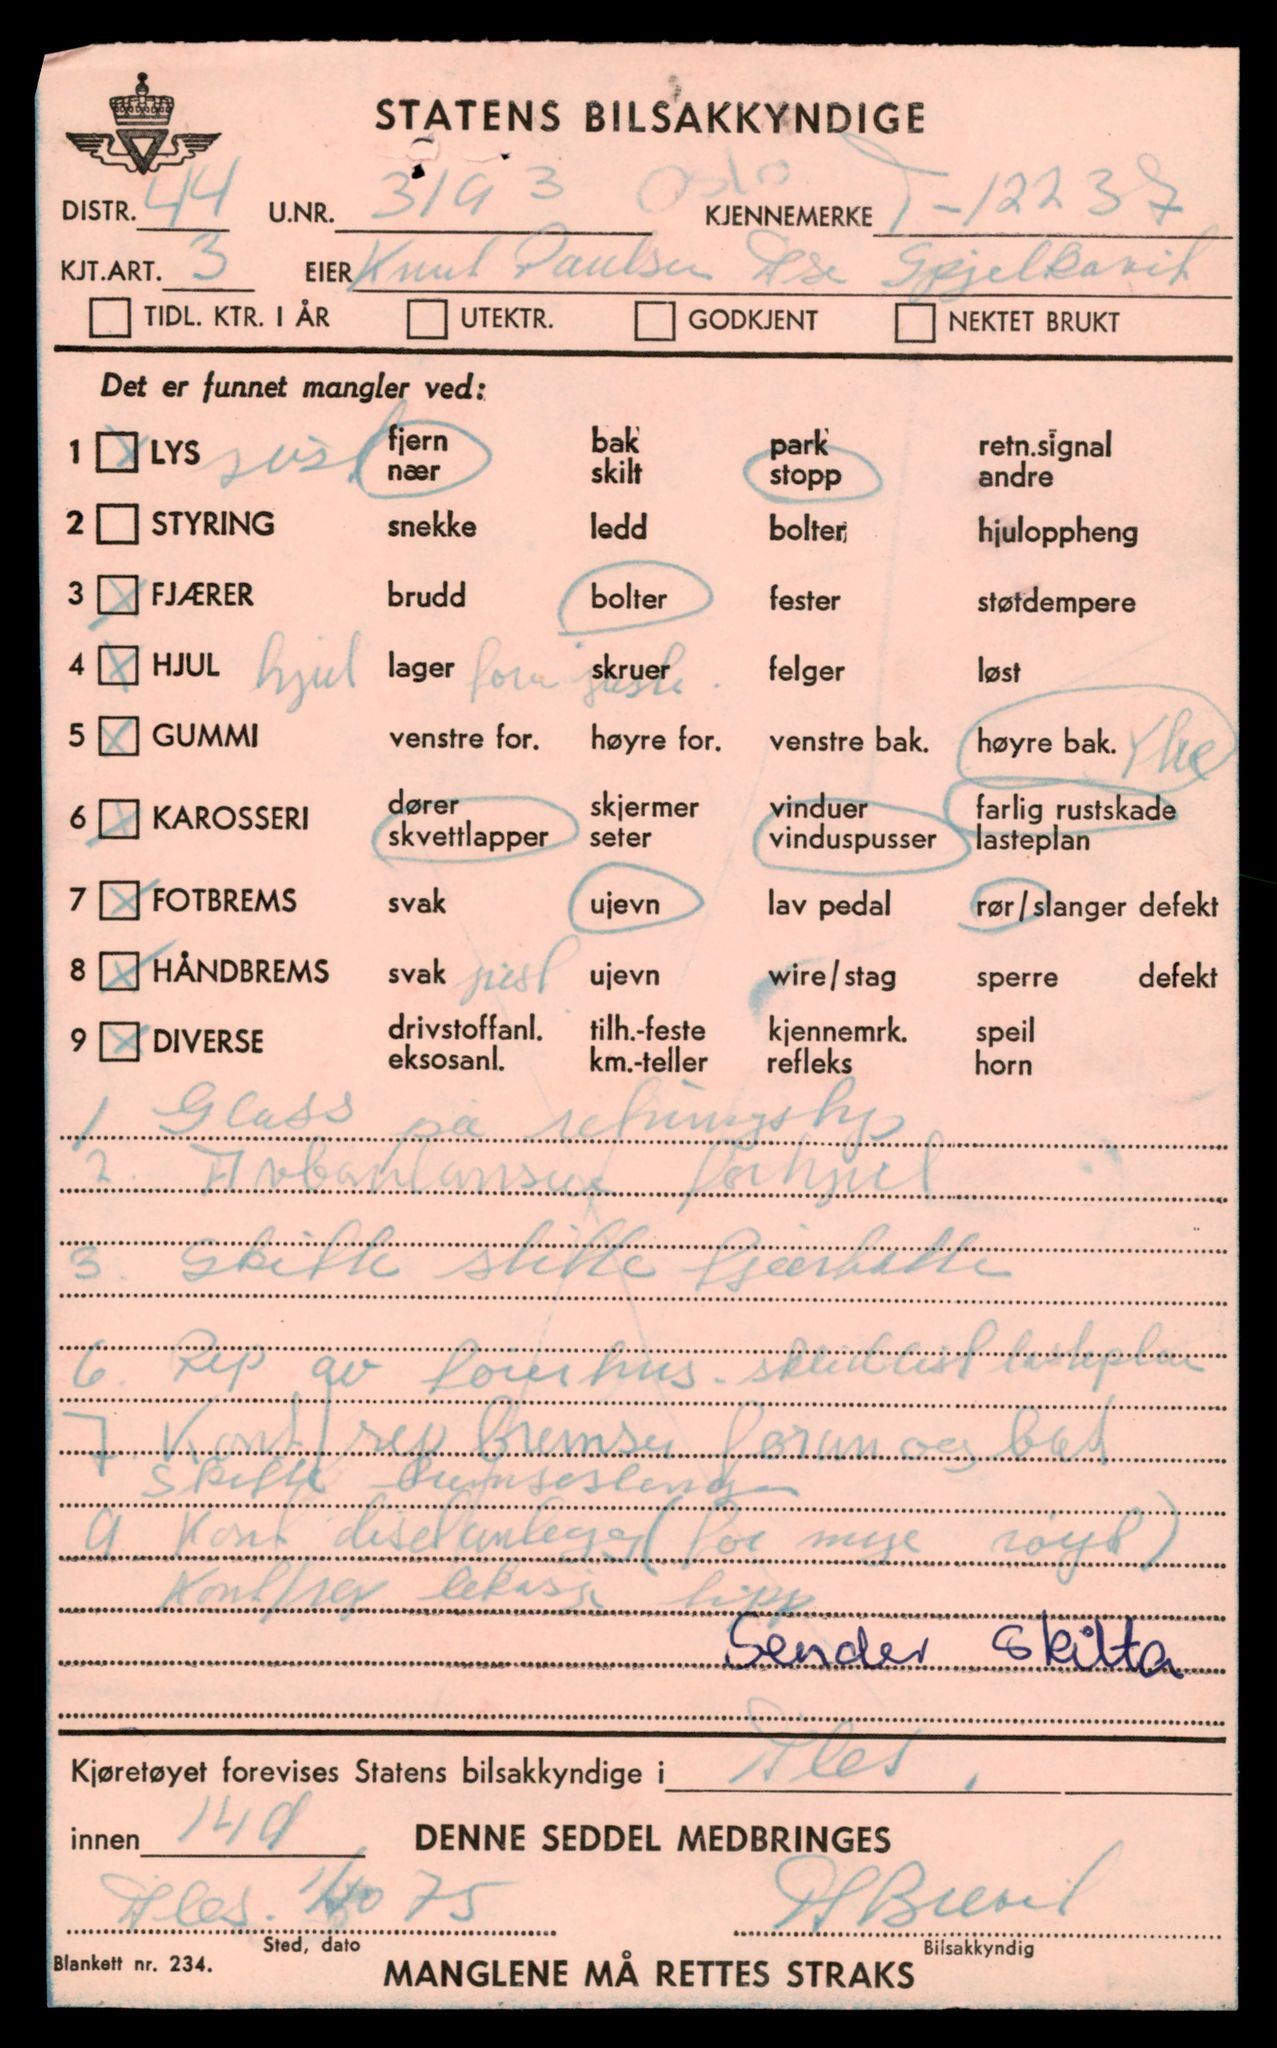 STATENS BILSAKKYNDIGE
DISTR. 44 U.NR. 3193 Oslo KJENNEMERKE T-12237
KJT.ART. 3 EIER Knut Paulsen Åse Spjelkavik
TIDL. KTR. I ÅR UTEKTR. GODKJENT NEKTET BRUKT
Det er funnet mangler ved:
1 LYS just fjern bak park retn.signal
nær skilt stopp andre
2 STYRING snekke ledd bolter hjuloppheng
3 FJÆRER brudd bolter fester støtdempere
4 HJUL hjul lager foran skruer juste felger løst
5 GUMMI venstre for. høyre for. venstre bak. høyre bak.
6 KAROSSERI dører skjermer vinduer farlig rustskade
skvettlapper seter vinduspusser lasteplan
7 FOTBREMS svak ujevn lav pedal rør/slanger defekt
8 HÅNDBREMS svak just ujevn wire/stag sperre defekt
9 DIVERSE drivstoffanl. tilh.-feste kjennemrk. speil
eksosanl. km.-teller refleks horn
1 Glass på retningslys
2. forhjul
3. Skifte slitte
6. Rep av førerhus. lasteplan
7. Kont/rep Bremser foran og bak
Skifte bremseslange
9 Kont diselanlegg (for mye røyk)
Kont/rep lekasje tipp
Sender skilta
Kjøretøyet forevises Statens bilsakkyndige i Ales.
innen 14d DENNE SEDDEL MEDBRINGES
Ales. 75
Sted, dato Bilsakkyndig
Blankett nr. 234. MANGLENE MÅ RETTES STRAKS